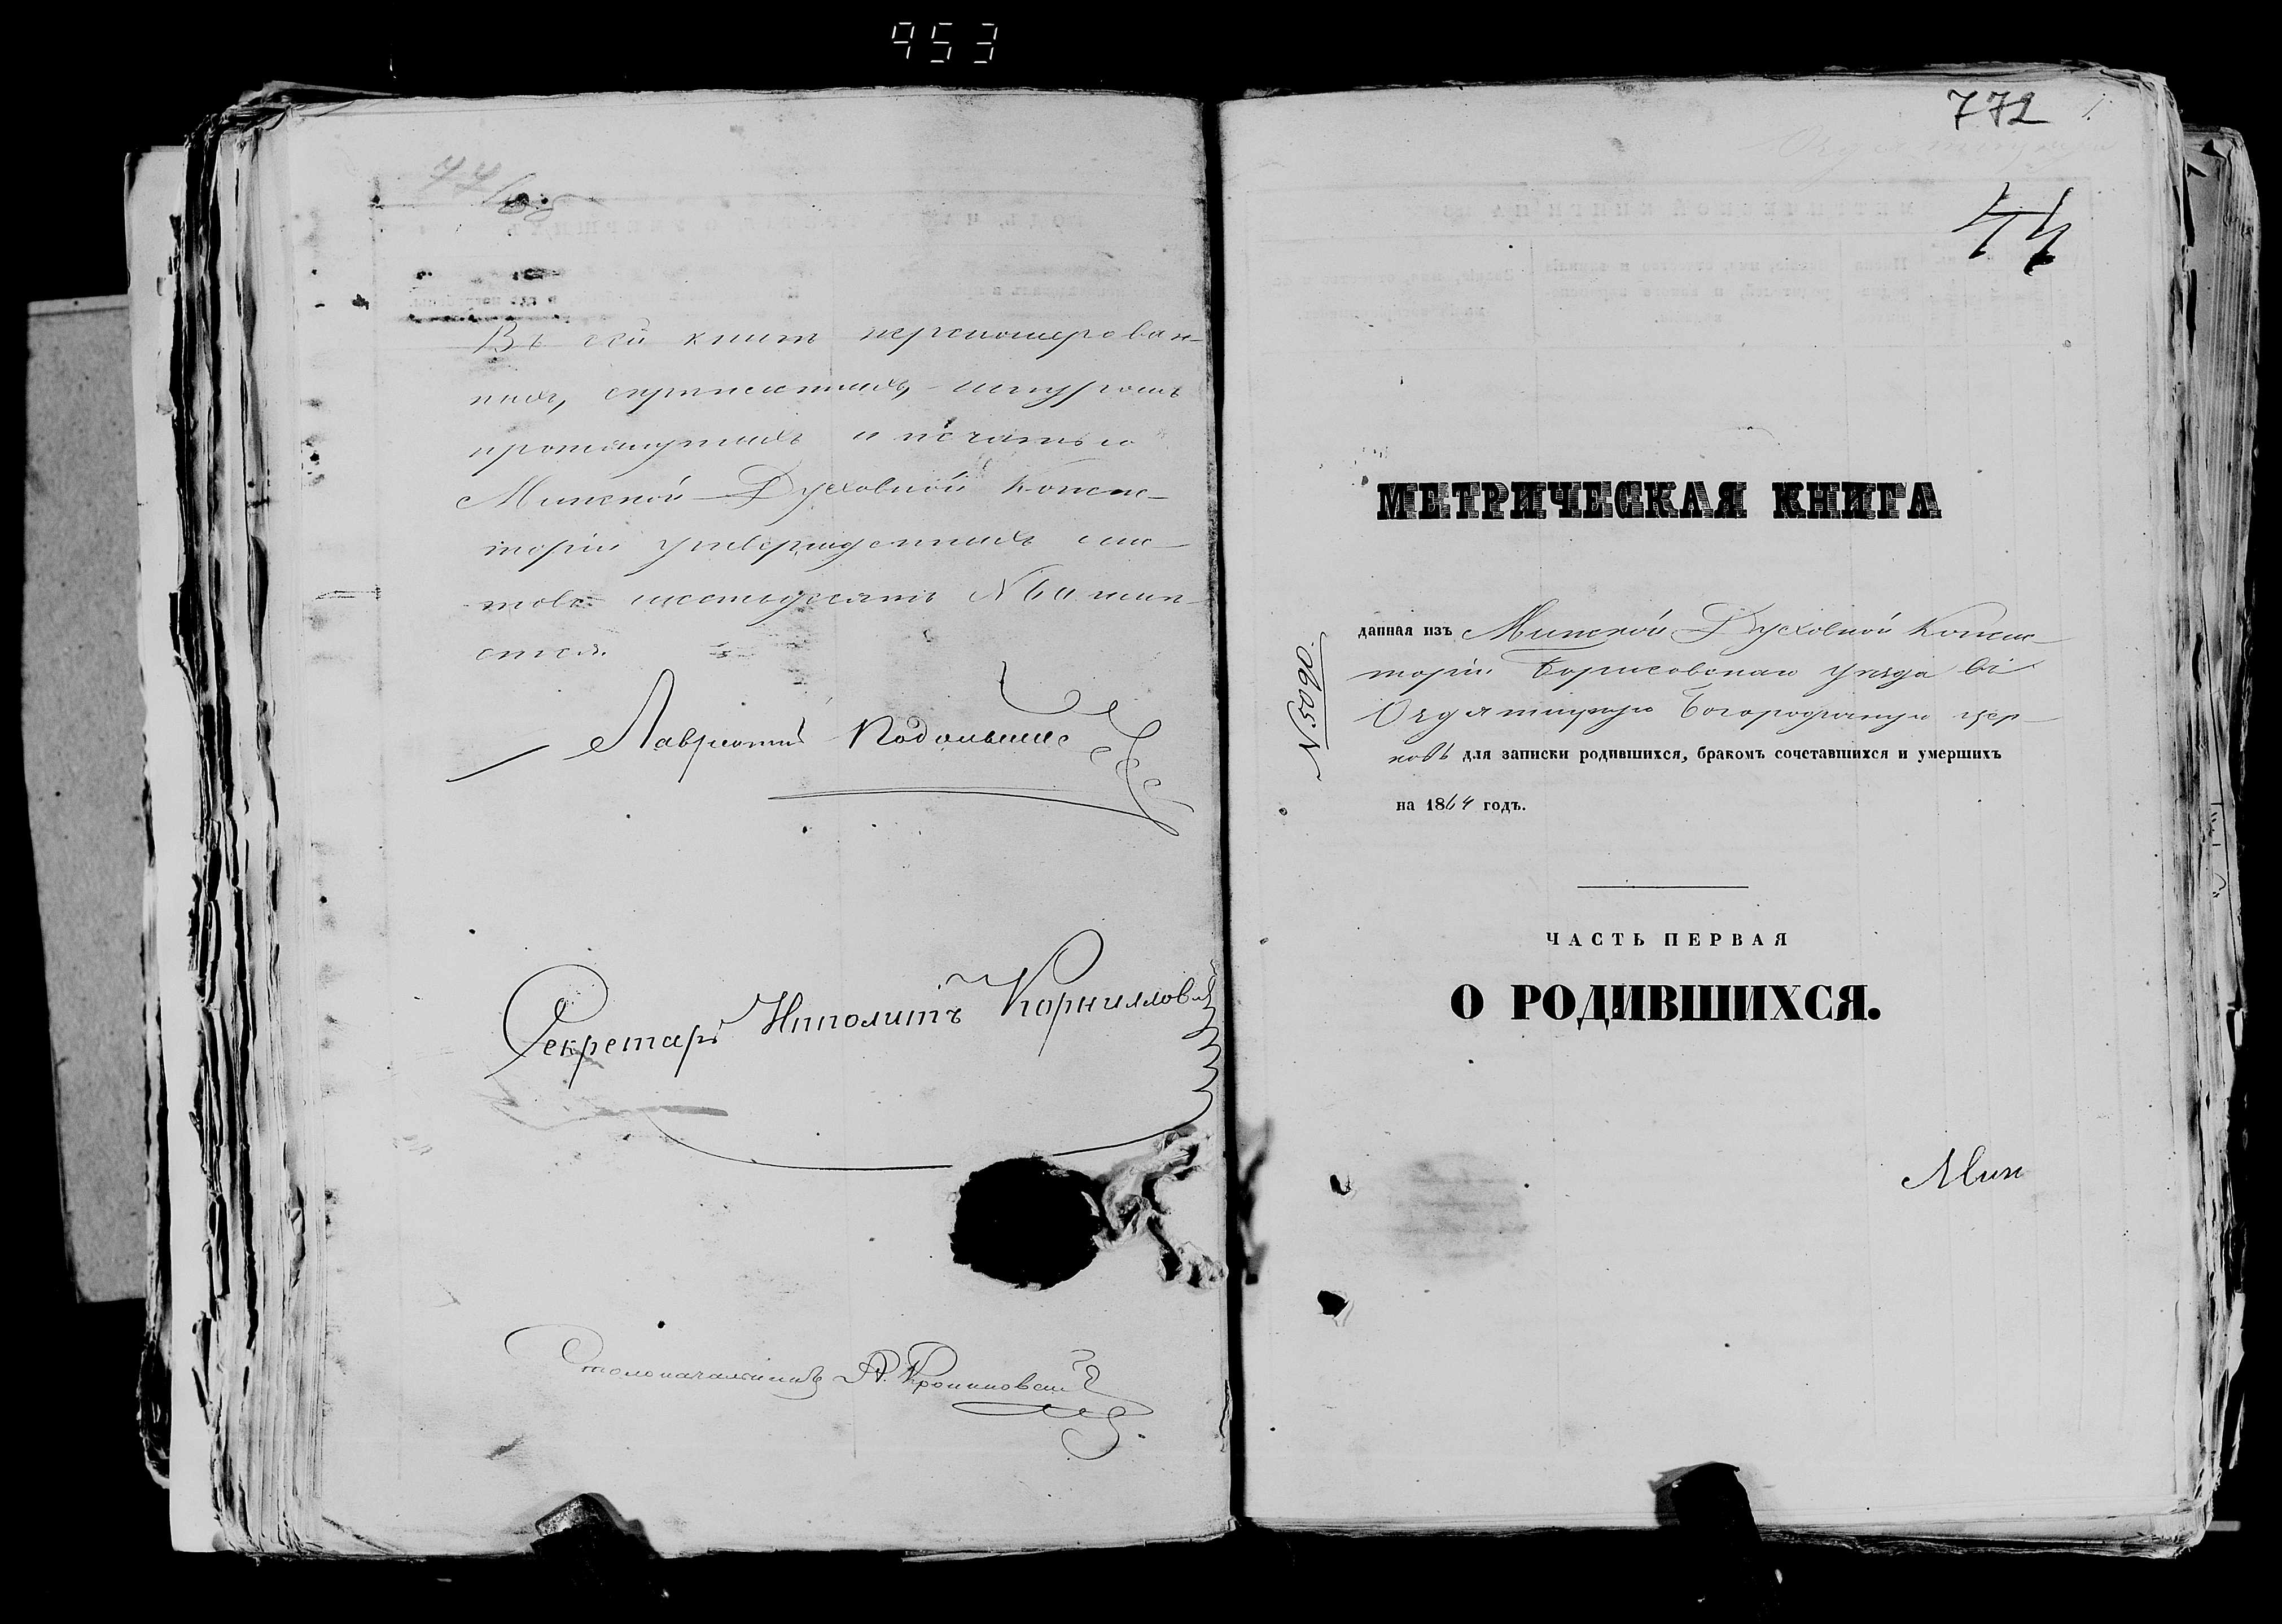 953
Въ сей книгѣ перенумерован-
ныхъ, скрѣпленныхъ, шнуромъ
протянутыхъ и печатью
Минской Духовной Консис-
торіи утвержденныхъ лис-
товъ шестьдесятъ N 60 лис-
Секретарь Ипполитъ Корниллов
Столоначальникъ А.
772
1.
44
МЕТРИЧЕСКАЯ КНИГА
N 5090.
данная изъ Минской Духовной Консис-
торіи Борисовскаго уѣзда въ
Богородичную цер-
ковь для записки родившихся, бракомъ сочетавшихся и умершихъ
на 1864 годъ.
ЧАСТЬ ПЕРВАЯ
О РОДИВШИХСЯ.
Мин